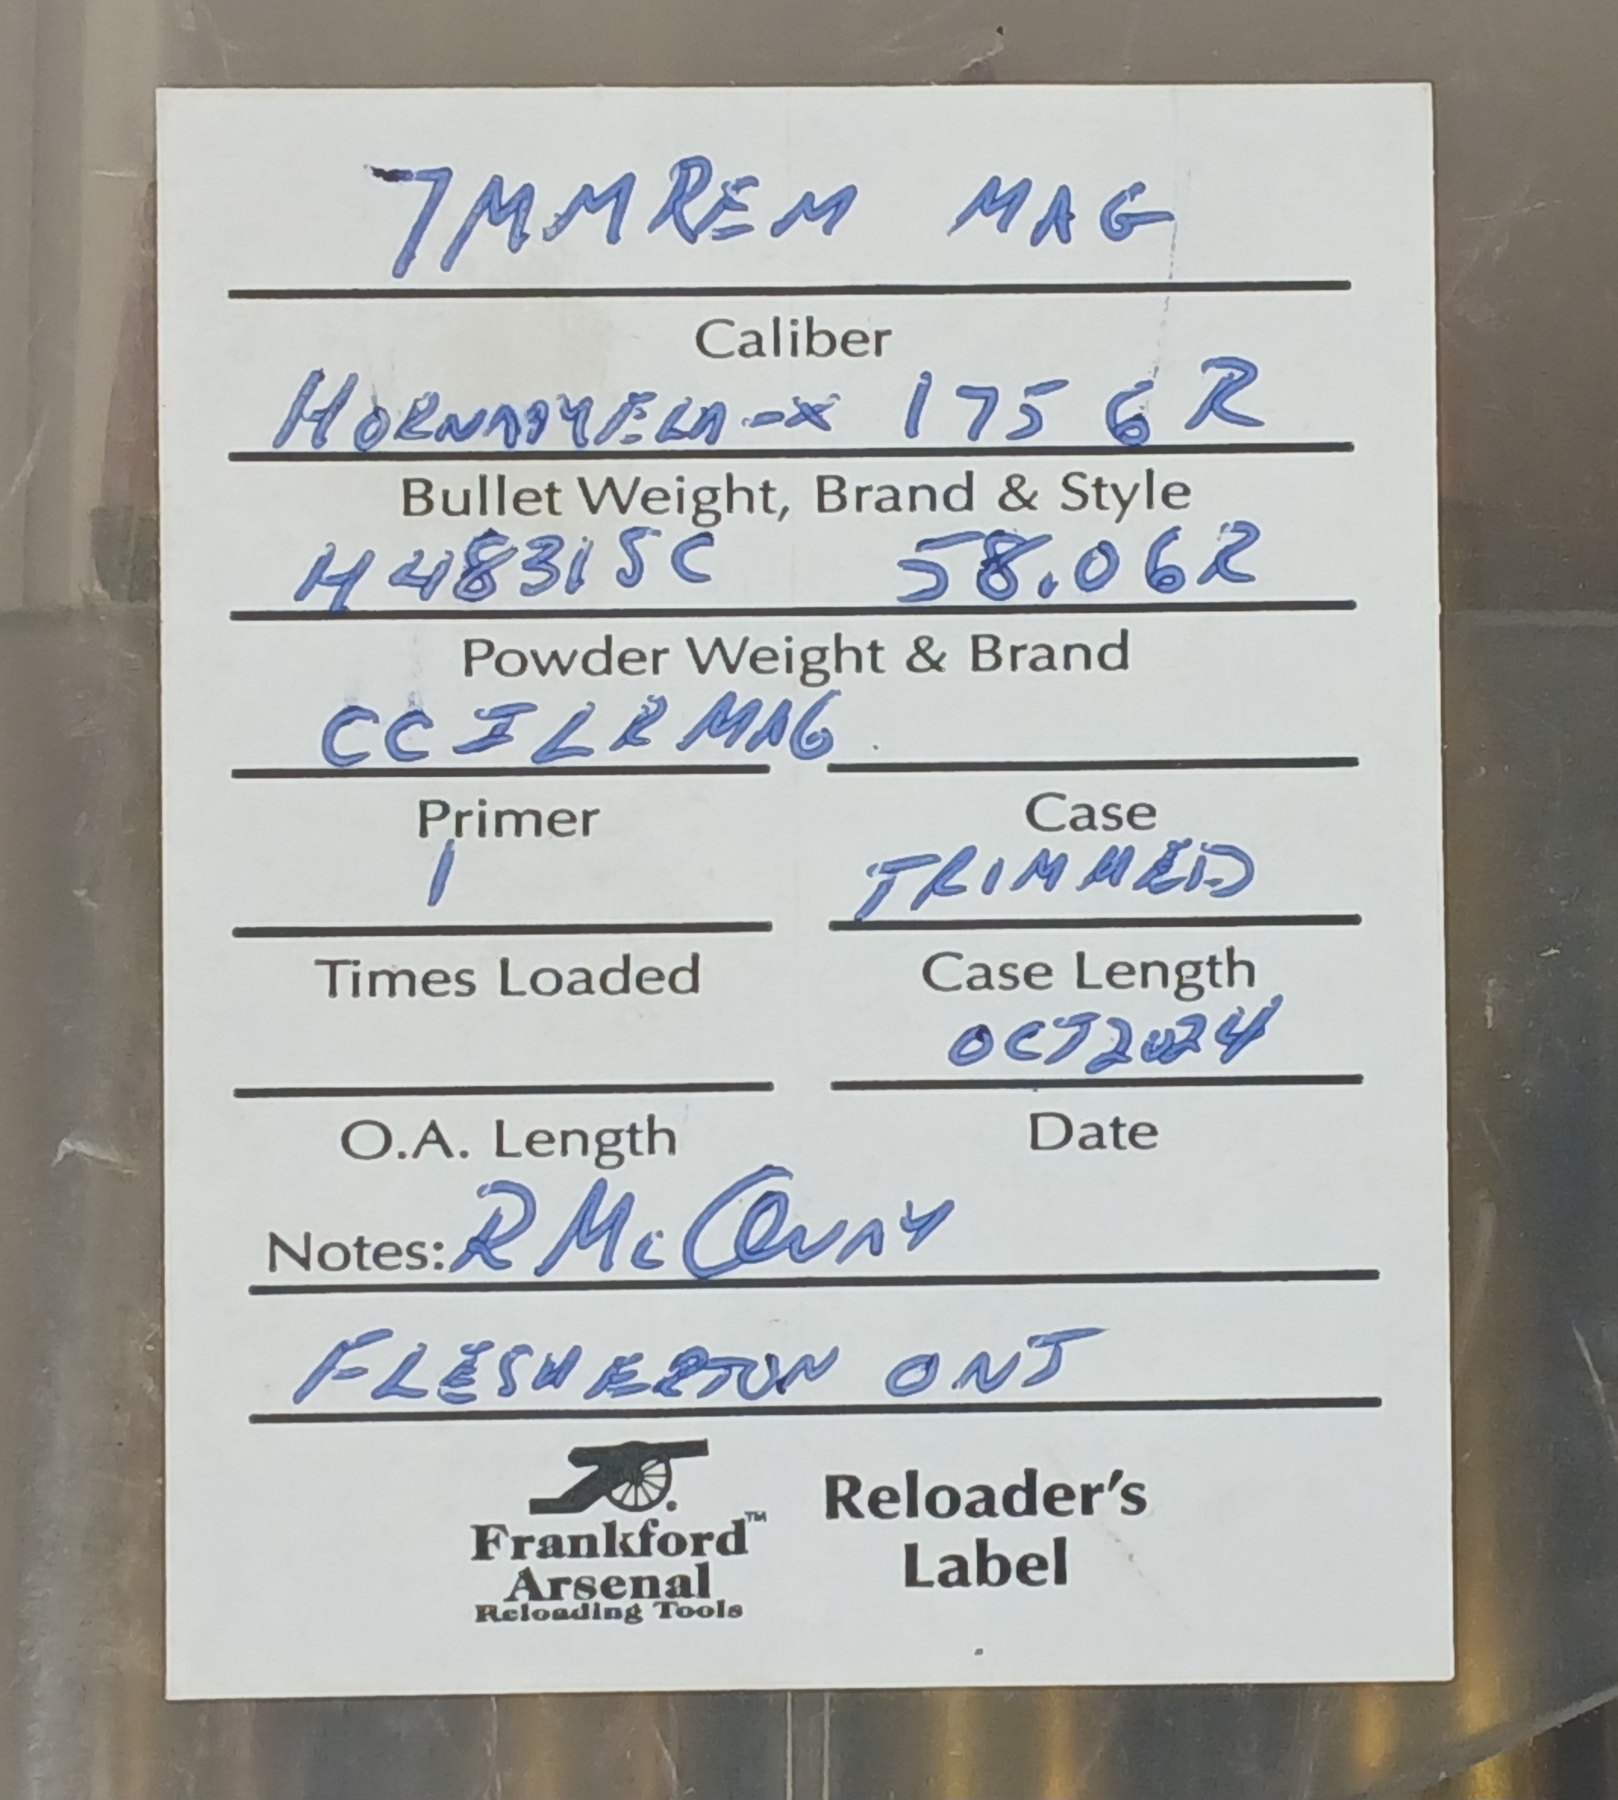 7MM REM MAG
Caliber
HORNADY ELD-X 175 GR
Bullet Weight, Brand & Style
H4831SC 58.0 GR
Powder Weight & Brand
CCI LR MAG
Primer Case
1 TRIMMED
Times Loaded Case Length
OCT 2024
O.A. Length Date
Notes: R McQuay
FLESHERTON ONT
Frankford™
Arsenal
Reloading Tools
Reloader's
Label